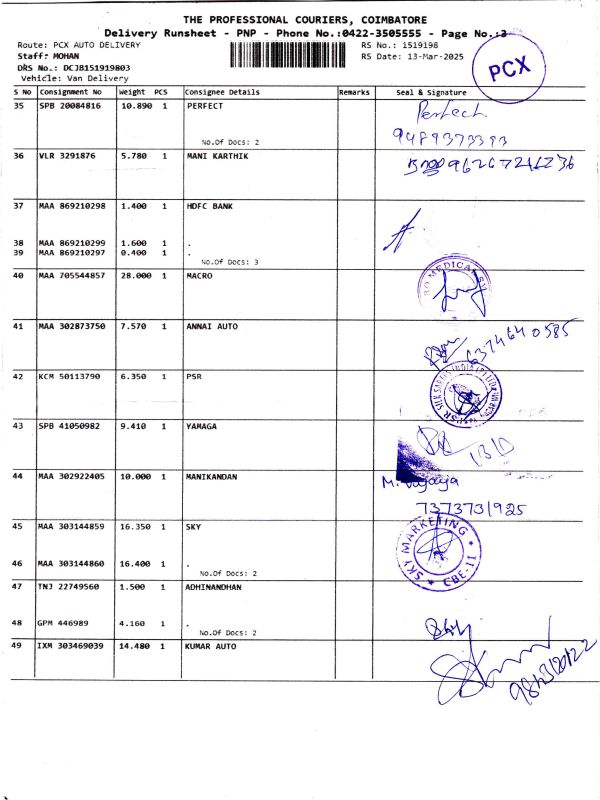 THE PROFESSIONAL COURIERS, COIMBATORE
Delivery Runsheet - PNP - Phone No.:0422-3505555 - Page No.:3
Route: PCX AUTO DELIVERY RS No.: 1519198
Staff: MOHAN RS Date: 13-Mar-2025
DRS No.: DCJB151919803
Vehicle: Van Delivery
PCX
S No Consignment No Weight PCS Consignee Details Remarks Seal & Signature
35 SPB 20084816 10.890 1 PERFECT Perfect
No.Of Docs: 2 9489373393
36 VLR 3291876 5.780 1 MANI KARTHIK
37 MAA 869210298 1.400 1 HDFC BANK
38 MAA 869210299 1.600 1 .
39 MAA 869210297 0.400 1 .
No.Of Docs: 3
40 MAA 705544857 28.000 1 MACRO
RO MEDICAL
41 MAA 302873750 7.570 1 ANNAI AUTO
6374640585
42 KCM 50113790 6.350 1 PSR
PSR SILK SAREES INDIA
43 SPB 41050982 9.410 1 YAMAGA
44 MAA 302922405 10.000 1 MANIKANDAN M. Vijaya
7373731925
45 MAA 303144859 16.350 1 SKY
SKY MARKETING * CBE-11 *
46 MAA 303144860 16.400 1 .
No.Of Docs: 2
47 TNJ 22749560 1.500 1 ADHINANDHAN
48 GPM 446989 4.160 1 .
No.Of Docs: 2
49 IXM 303469039 14.480 1 KUMAR AUTO